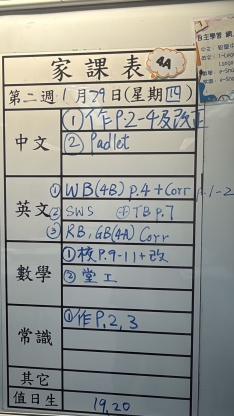 家課表 4A
第二週 1月29日(星期四)
中文 ①作P.2-4及改正
② Padlet
英文 ① WB(4B) p.4 + Corr p.1-2
② SWS ⊕TB p.7
③ RB, GB(4A) Corr
數學 ①核P.9-11+改
②堂工
常識 ①作P.2,3
其它
值日生 19,20
自主學習